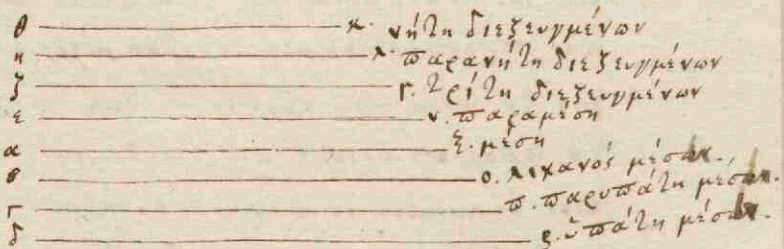 θ κ. νήτη διεζευγμένων
η λ. παρανήτη διεζευγμένων
ζ Γ. τρίτη διεζευγμένων
ε ν. παραμέση
α ξ. μέση
β ο. λιχανός μέσων.
Γ π. παρυπάτη μέσων.
δ ς. ὑπάτη μέσων.